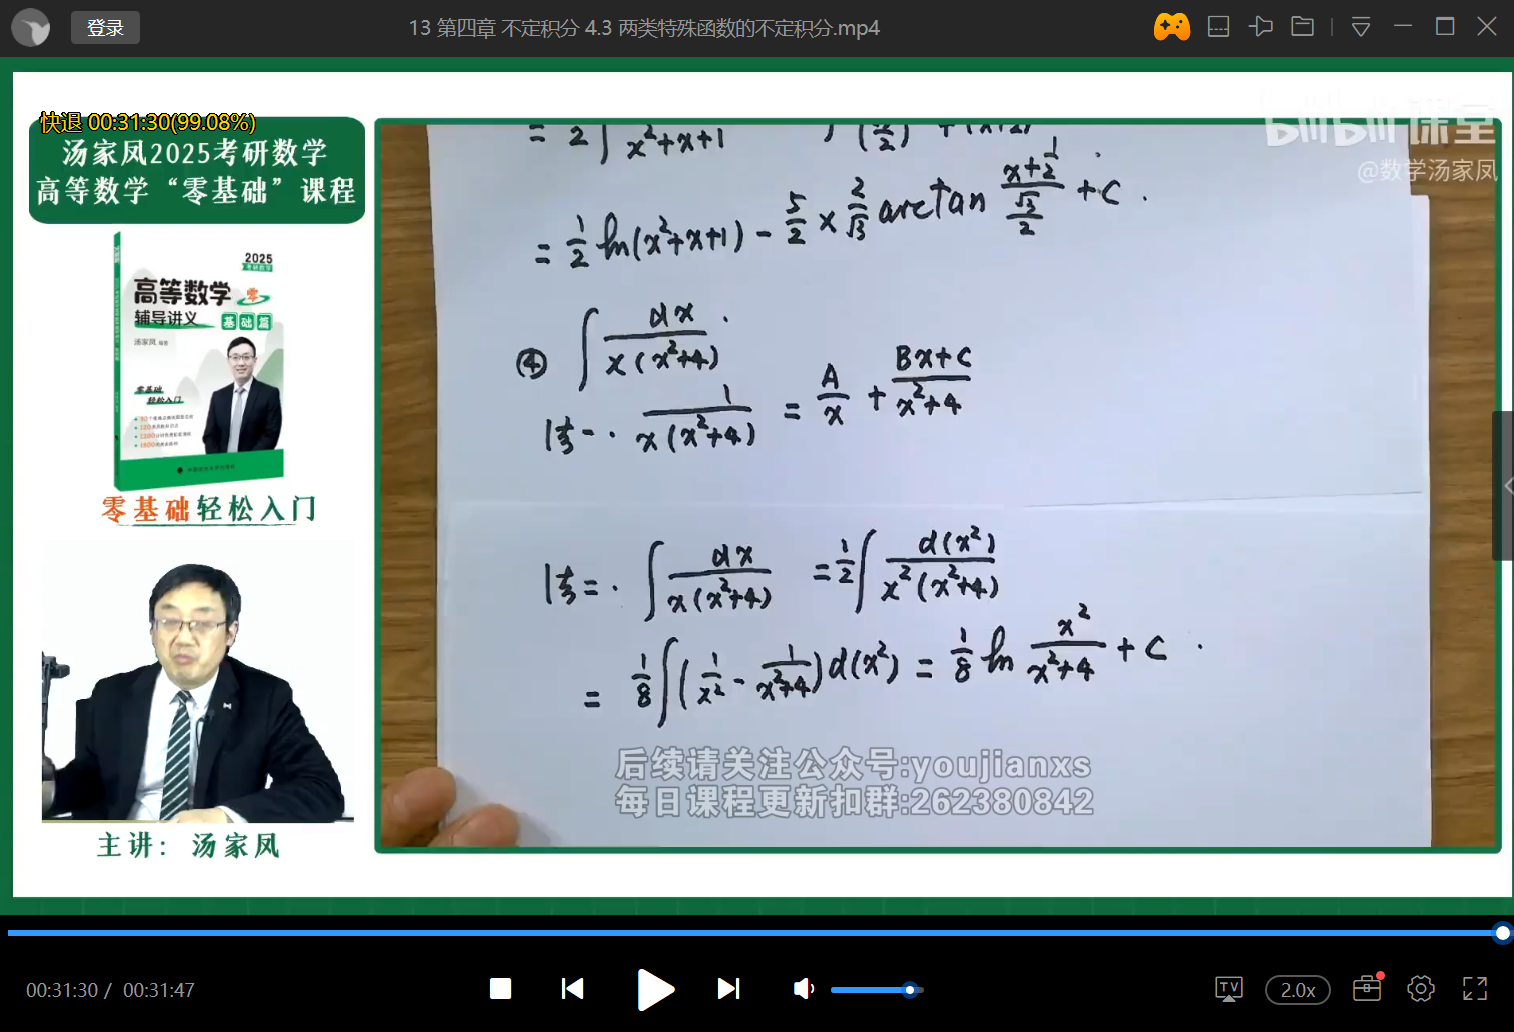 登录
13 第四章 不定积分 4.3 两类特殊函数的不定积分.mp4
快退 00:31:30(99.08%)
汤家凤2025考研数学
高等数学“零基础”课程
2025
考研数学
高等数学 零
辅导讲义 基础篇
汤家凤 编著
零基础
轻松入门
零基础轻松入门
主讲：汤家凤
bilibili课堂
@数学汤家凤
= 1/2 ln(x²+x+1) - 5/2 × 2/√3 arctan (x+1/2)/(√3/2) + C.
④ ∫ dx/(x(x²+4)).
法一. 1/(x(x²+4)) = A/x + (Bx+C)/(x²+4)
法二. ∫ dx/(x(x²+4)) = 1/2 ∫ d(x²)/(x²(x²+4))
= 1/8 ∫ (1/x² - 1/(x²+4)) d(x²) = 1/8 ln x²/(x²+4) + C.
后续请关注公众号:youjianxs
每日课程更新扣群:262380842
00:31:30 / 00:31:47
TV
2.0x